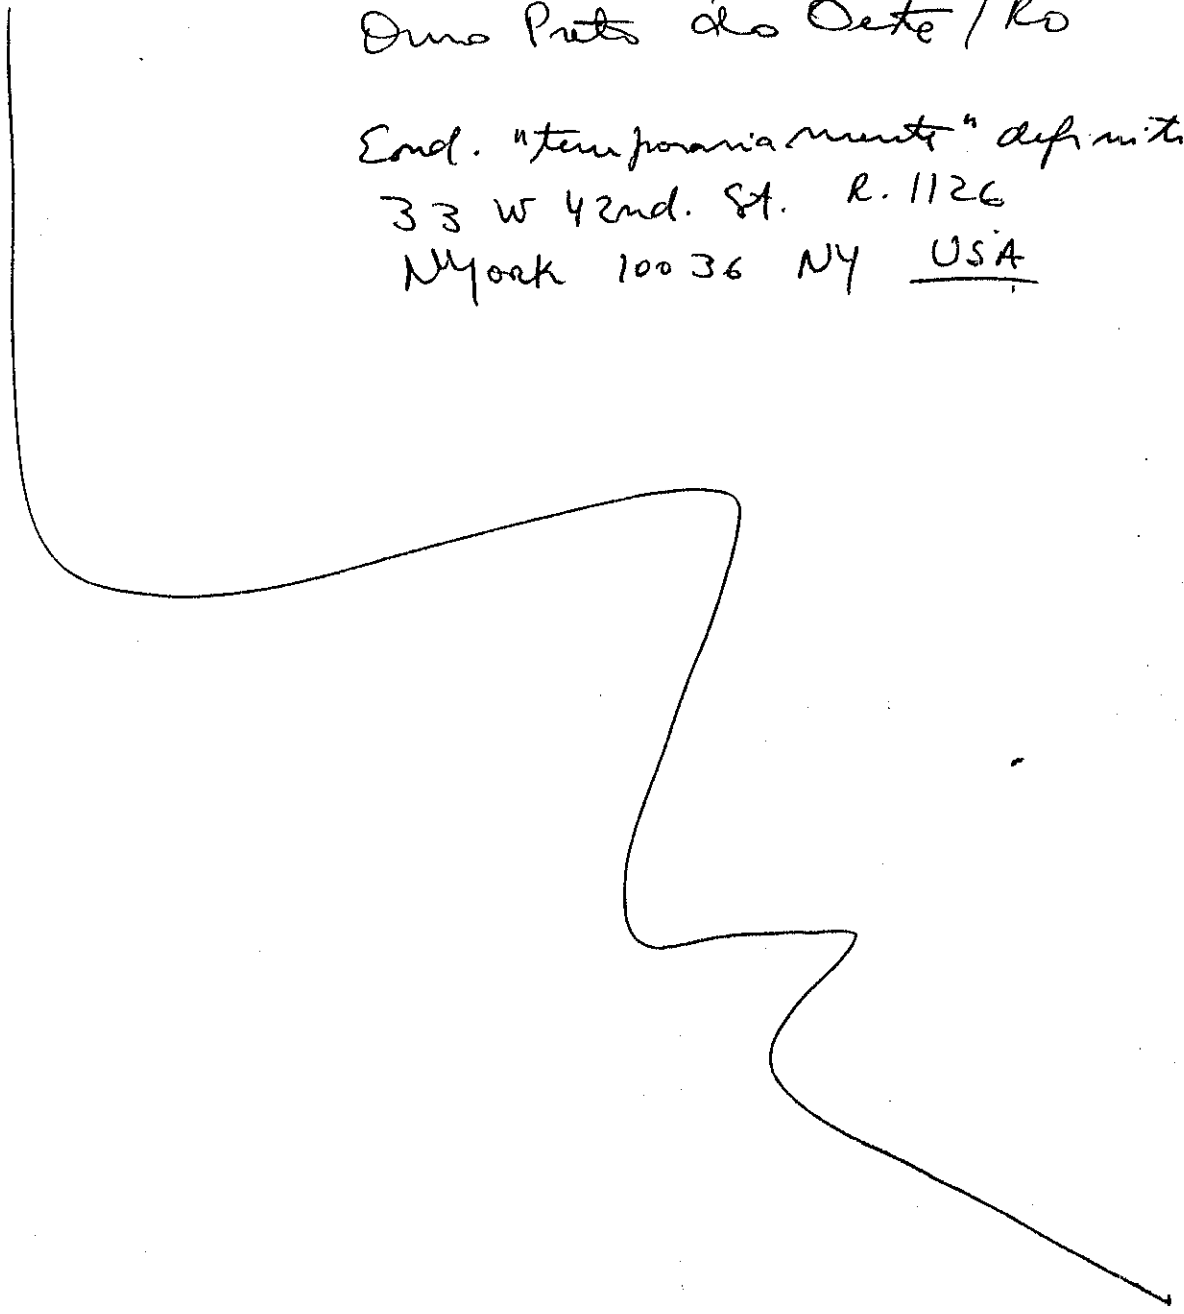 Ouro Preto do Oeste / RO
End. "temporariamente" definit
33 W 42nd. St. R. 1126
NYork 10036 NY USA